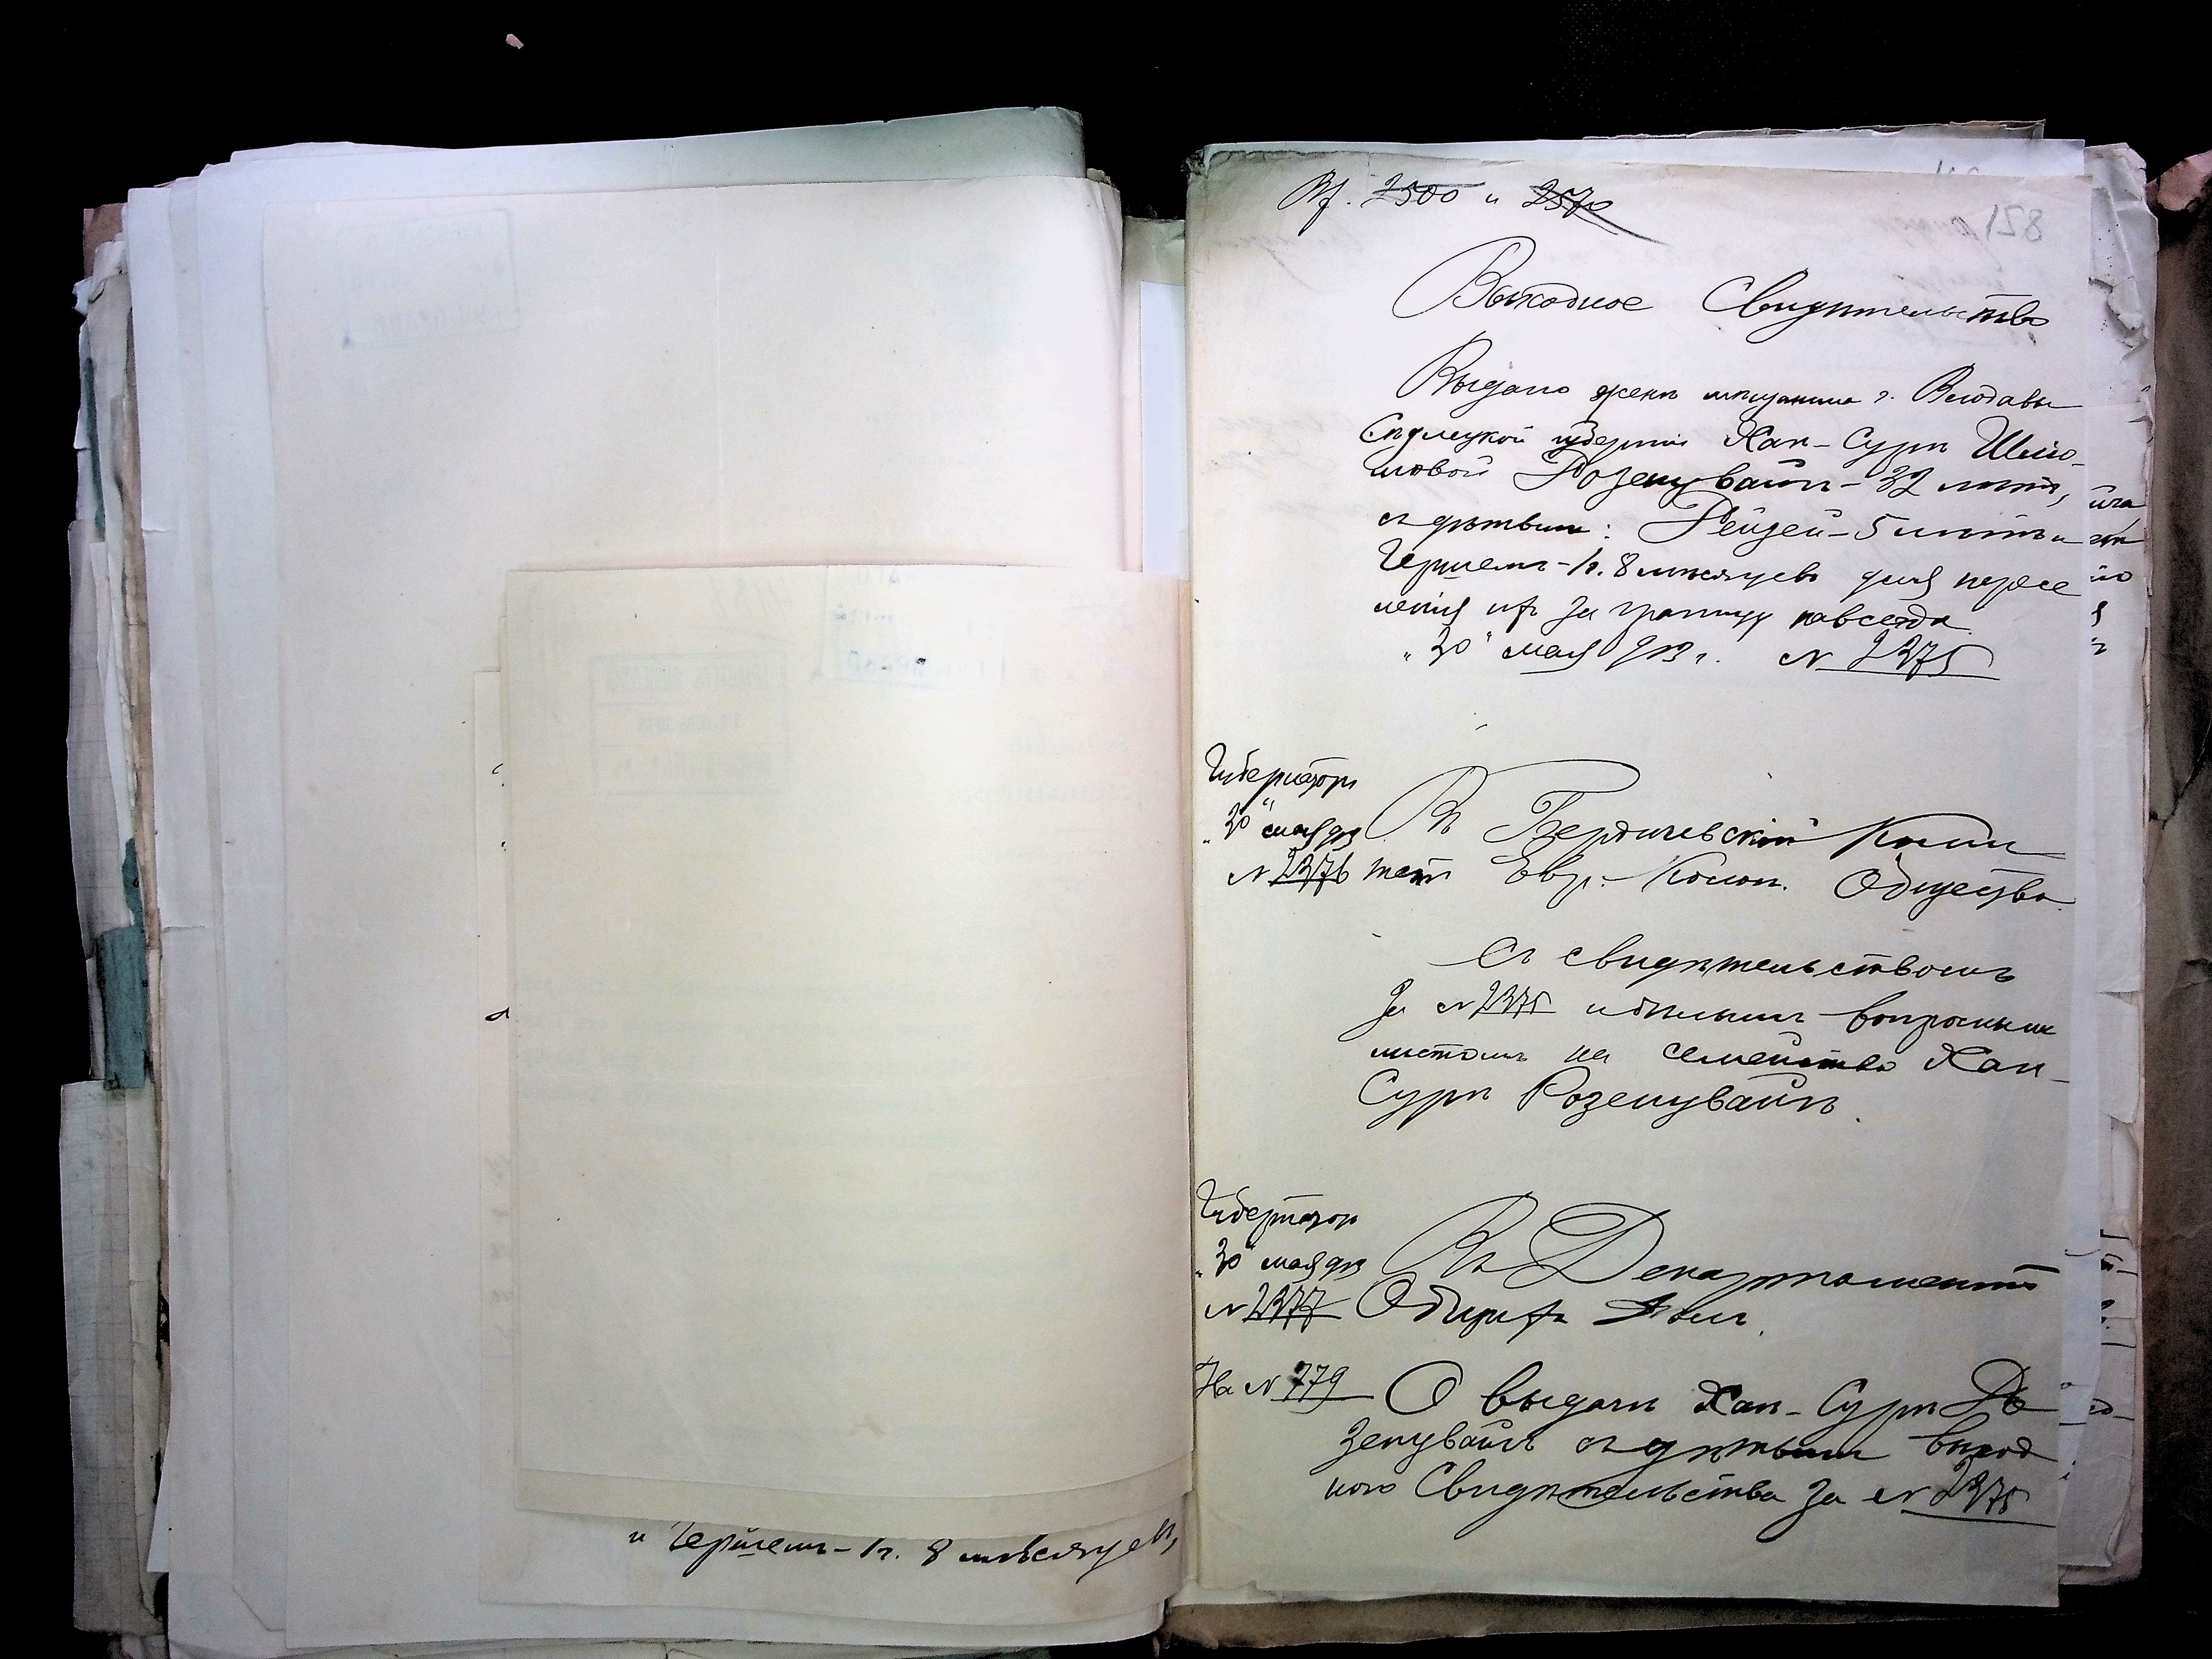 и Гершемъ - 1 г. 8 мѣсяцевъ,
Вх. 2500 и 2570
Выходное Свидѣтельство
Выдано женѣ мѣщанина г. Влодавы
Сѣдлецкой губерніи Хан-Сурѣ Шлио-
мовой Розенцвайгъ - 32 лѣтъ,
съ дѣтьми: Рейзей - 5 лѣтъ и
Гершемъ - 1 г. 8 мѣсяцевъ для пересе
ленія ихъ за границу навсегда.
"30" мая 913 г. № 2375
Губернаторъ
"30" мая 913
№ 2376
Въ Бердичевскій Коми
тетъ Евр. - Колон. Общества.
Съ свидѣтельствомъ
за № 2375 и бѣлымъ вопроснымъ
листомъ на семейство Хан-
Суры Розенцвайгъ.
Губернатор
"30" мая 913
№ 2377
Въ Департаментъ
Общихъ Дѣлъ.
На № 779
О выдачѣ Хан-Сурѣ Ро
зенцвайгъ съ дѣтьми выход
ного Свидѣтельства за № 2375